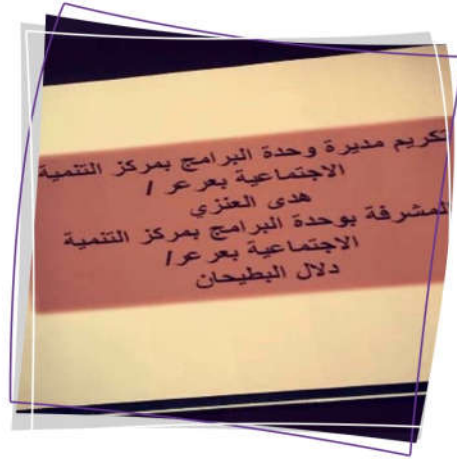 تكريم مديرة وحدة البرامج بمركز التنمية
الاجتماعية بعرعر /
هدى العنزي
المشرفة بوحدة البرامج بمركز التنمية
الاجتماعية بعرعر/
دلال البطيحان